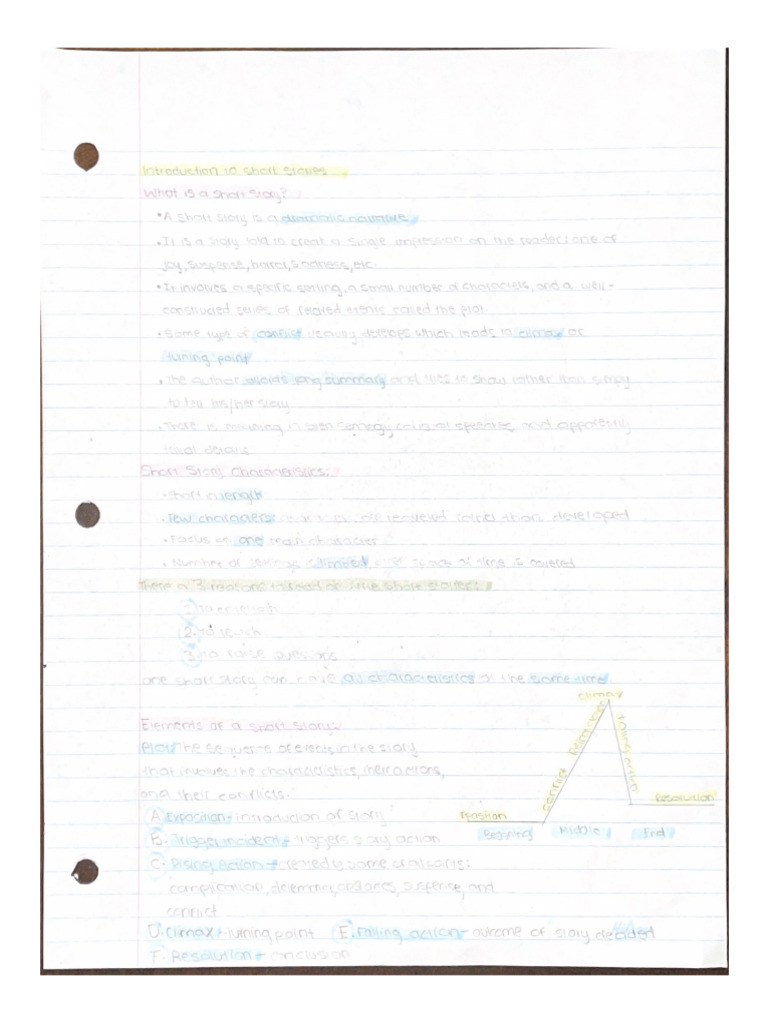 Introduction to Short Stories
What is a Short Story?
• A short story is a dramatic narrative
• It is a story told to creat a single impression on the reader; one of
joy, suspense, horror, sadness, etc.
• It involves a specific setting, a small number of characters, and a well-
constructed series of related events called the plot
• Some type of conflict develops which leads to climax or
turning point
• The author avoids long summary and tries to show rather than simply
to tell his/her story
• There is meaning in even and apparently
details
Short Story Characteristics:
• Short in length
• Few characters, characters are revealed rather than developed
• Focus on one main character
• Number of settings is limited and space of time is covered
There a 3 reasons short stories:
1)
2. to teach
3. to raise questions
one short story can have all characteristics at the same time
Elements of a Short Story:
Plot: The sequence of events in the story
that involves the characteristics, their actions,
and their conflicts.
A. Exposition - introduction of story
B. Trigger incident - triggers story action
C. Rising Action -
complication, suspense, and
conflict
D. Climax - turning point E. Falling action - outcome of story decided
F. Resolution - conclusion
climax
conflict
falling action
Resolution
Begining Middle End